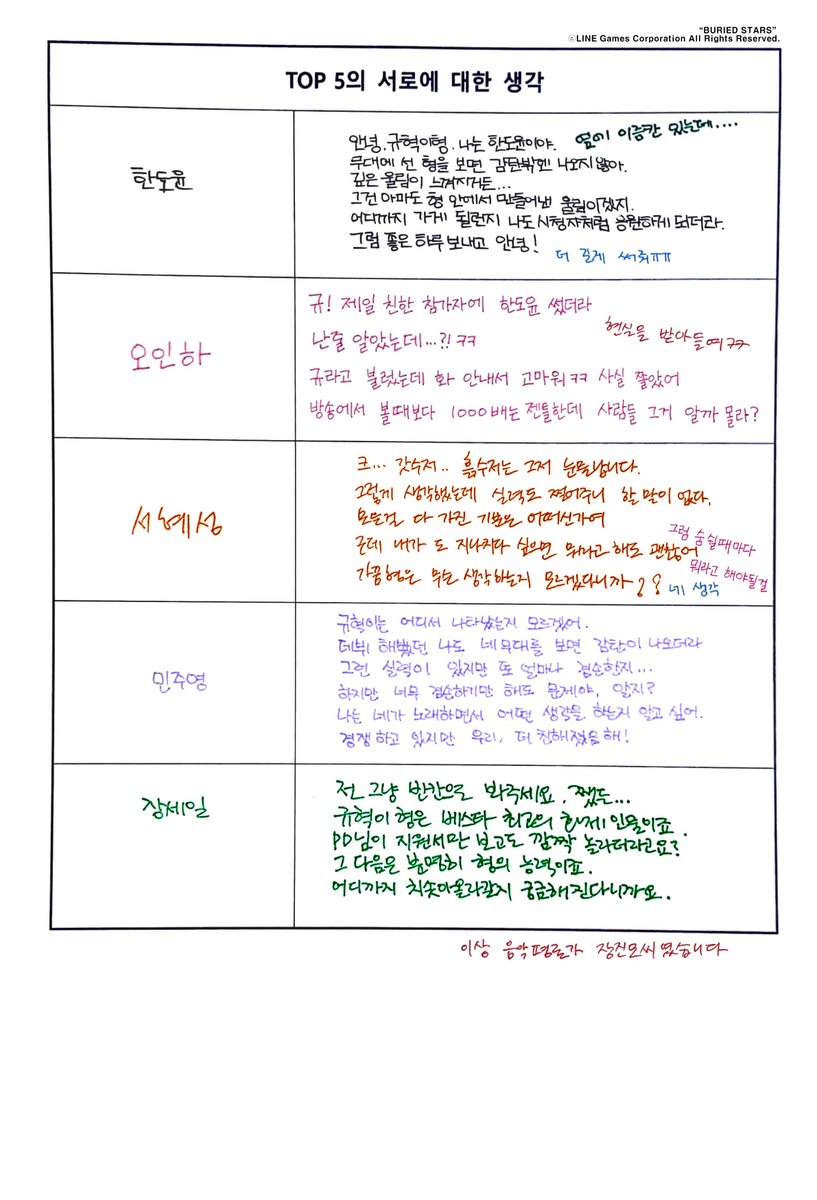 "BURIED STARS"
©LINE Games Corporation All Rights Reserved.
TOP 5의 서로에 대한 생각
한도윤
안녕, 규혁이형. 나는 한도윤이야.
옆에 이름칸 있는데....
무대에 선 형을 보면 감탄밖엔 나오지않아.
깊은 울림이 느껴지거든...
그건 아마도 형 안에서 만들어낸 울림이겠지.
어디까지 가게 될런지 나도 시청자처럼 응원하게 되더라.
그럼 좋은 하루 보내고 안녕!
더 길게 써줘ㅠㅠ
오인하
규! 제일 친한 참가자에 한도윤 썼더라
난줄 알았는데...?! ㅋㅋ
현실을 받아들여ㅋㅋ
규라고 불렀는데 화 안내서 고마워ㅋㅋ 사실 쫄았어
방송에서 볼때보다 1000배는 젠틀한데 사람들 그거 알까 몰라?
서혜성
크... 갓수저.. 흙수저는 그저 눈물납니다.
그렇게 생각했는데 실력도 쩔어주니 할 말이 없다.
모든걸 다 가진 기분은 어떠신가여
근데 내가 도 지나치다 싶으면 뭐라고 해도 괜찮어
그럼 숨쉴때마다
뭐라고 해야될걸
가끔형은 무슨 생각하는지 모르겠다니까??
네 생각
민주영
규혁이는 어디서 나타났는지 모르겠어.
데뷔 해봤던 나도 네 무대를 보면 감탄이 나오더라
그런 실력이 있지만 또 얼마나 겸손한지...
하지만 너무 겸손하기만 해도 문제야, 알지?
나는 네가 노래하면서 어떤 생각을 하는지 알고 싶어.
경쟁하고 있지만 우리, 더 친해졌음 해!
장세일
전 그냥 반칸으로 봐주세요. 쨌든...
규혁이 형은 베스타 최고의 화제 인물이죠.
PD님이 지원서만 보고도 깜짝 놀라더라고요?
그 다음은 분명히 형의 능력이죠.
어디까지 치솟아올라갈지 궁금해진다니까요.
이상 음악평론가 장진모씨였습니다